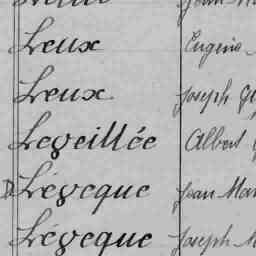 Leux Eugène
Leux Joseph
Leveillée Albert
Léveque Jean Mar
Léveque Joseph M